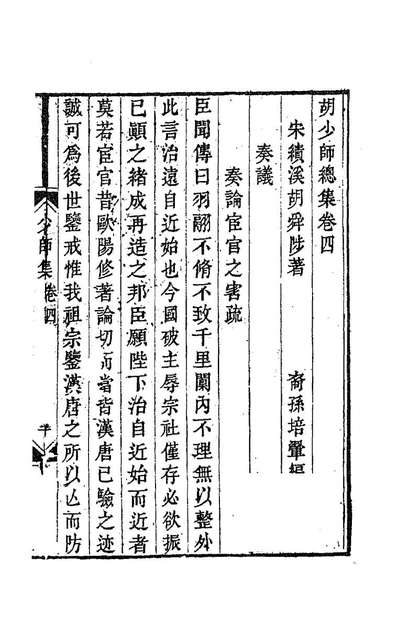 胡少師總集卷四
宋績溪胡舜陟著 裔孫培翬編
奏議
奏論宦官之害疏
臣聞傳曰羽翮不脩不致千里閫內不理無以整外
此言治遠自近始也今國破主辱宗社僅存必欲振
已顛之緒成再造之邦臣願陛下治自近始而近者
莫若宦官昔歐陽修著論切而當皆漢唐已驗之迹
誠可為後世鑒戒惟我祖宗鑒漢唐之所以亾而防
少師集 卷四